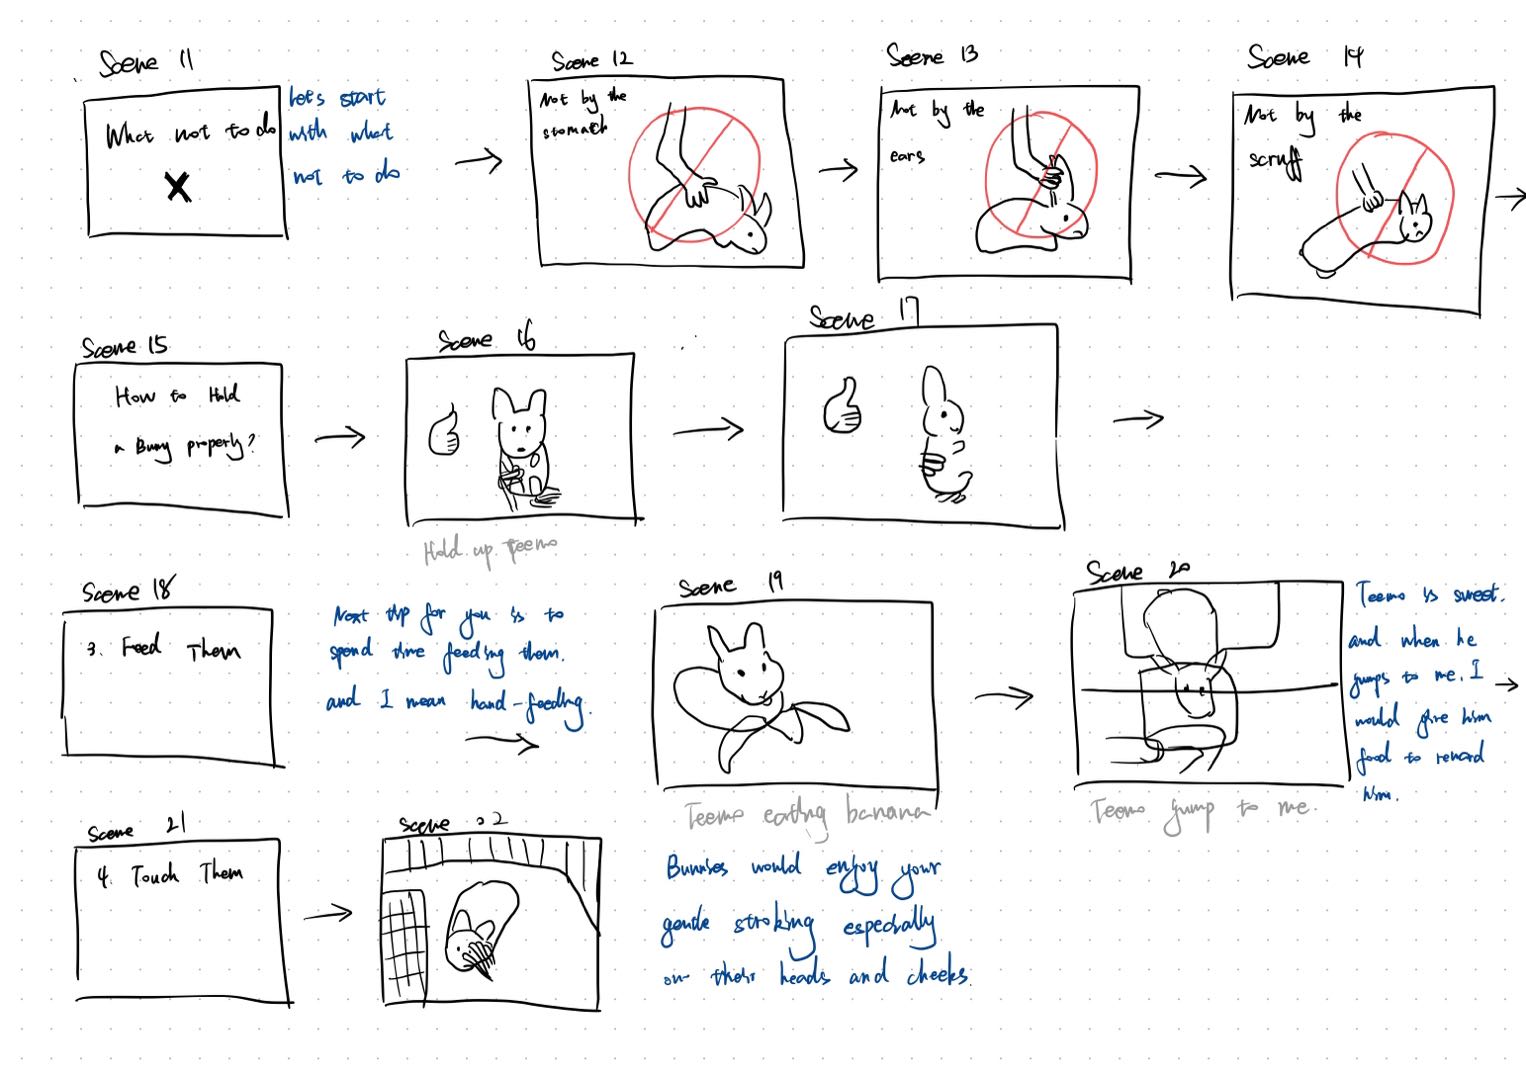 Scene 11
What not to do
Let's start
with what
not to do
Scene 12
Not by the
stomach
Scene 13
Not by the
ears
Scene 14
Not by the
scruff
Scene 15
How to Hold
a Bunny properly?
Scene 16
Hold up Teemo
Scene 17
Scene 18
3. Feed Them
Next tip for you is to
spend time feeding them.
and I mean hand-feeding.
Scene 19
Teemo eating banana
Scene 20
Teemo jump to me.
Teemo is sweet.
and when he
jumps to me. I
would give him
food to reward
him.
Scene 21
4. Touch Them
Scene 22
Bunnies would enjoy your
gentle stroking especially
on their heads and cheeks.